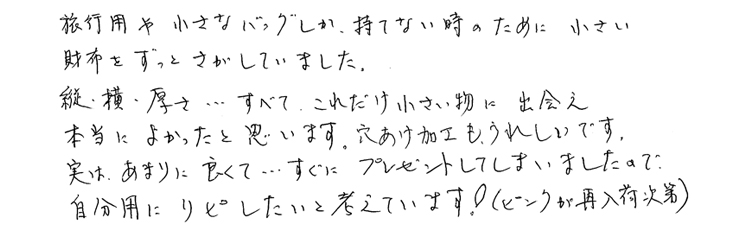 旅行用や小さなバッグしか、持てない時のために小さい
財布をずっとさがしていました。
縦・横・厚さ…すべて、これだけ小さい物に出会え
本当によかったと思います。穴あけ加工も、うれしいです。
実は、あまりに良くて…すぐにプレゼントしてしまいましたので、
自分用にリピしたいと考えています！(ピンクが再入荷次第)